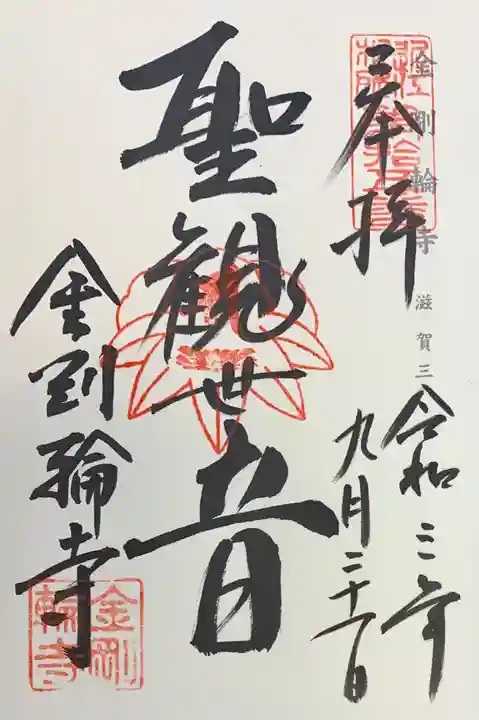 金剛輪寺 滋賀三
奉拝
令和三年
九月二十一日
聖観世音
金剛輪寺
金剛
輪寺